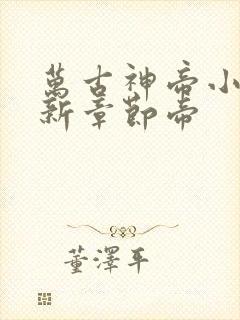 萬古神帝小
新章節帝
董澤平